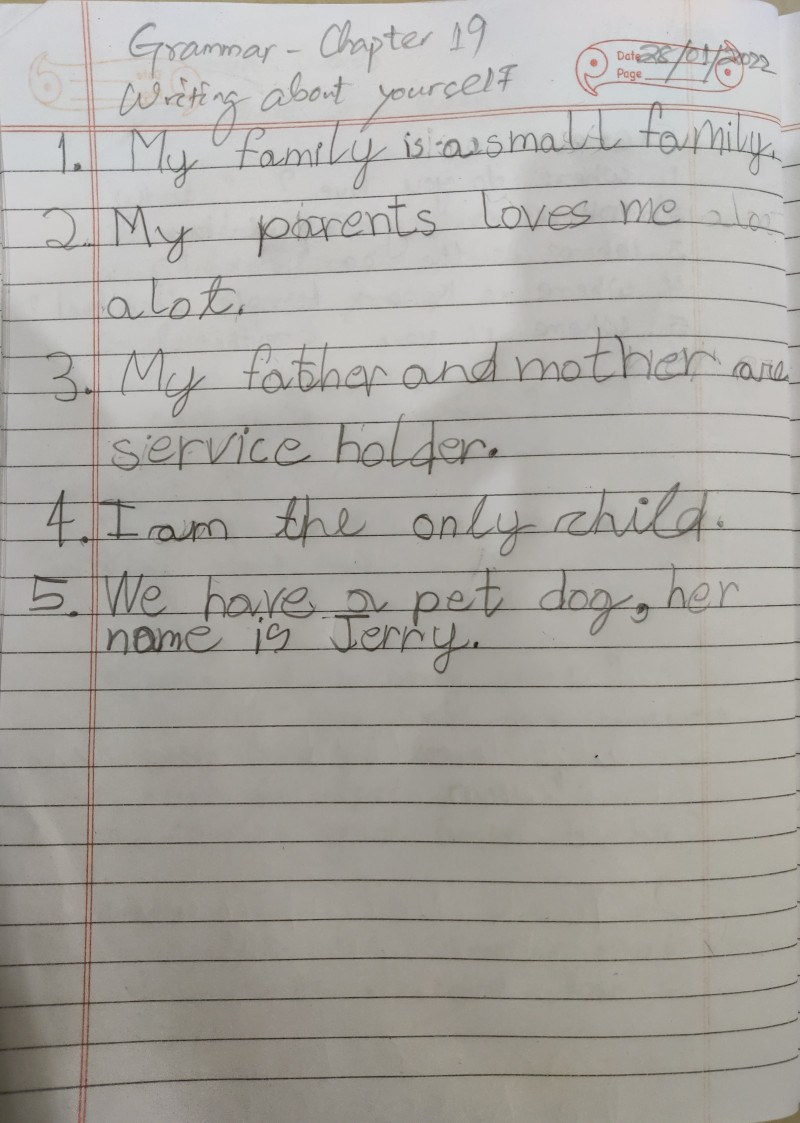 Grammar - Chapter 19
Date 28/01/2022
Page
Writing about yourself
1. My family is a small family.
2. My parents loves me alo
alot.
3. My father and mother are
service holder.
4. I am the only child.
5. We have a pet dog, her
name is Jerry.